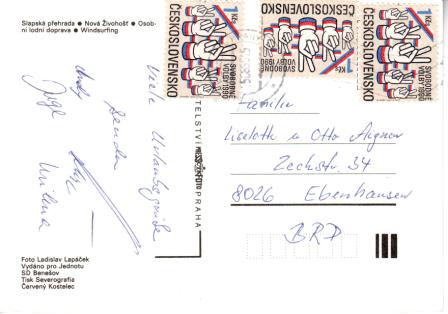 Slapská přehrada • Nová Živohošť • Osob-
ní lodní doprava • Windsurfing
Viele Urlaubsgrüße
senden
Milena
Foto Ladislav Lapáček
Vydáno pro Jednotu
SD Benešov
Tisk Severografia
Červený Kostelec
1 Kčs
ČESKOSLOVENSKO
SVOBODNÉ
VOLBY 1990
1 Kčs
ČESKOSLOVENSKO
SVOBODNÉ
VOLBY 1990
1 Kčs
ČESKOSLOVENSKO
SVOBODNÉ
VOLBY 1990
Familie
Liselotte u Otto Aigner
Zeckstr. 34
8026 Ebenhausen
BRD